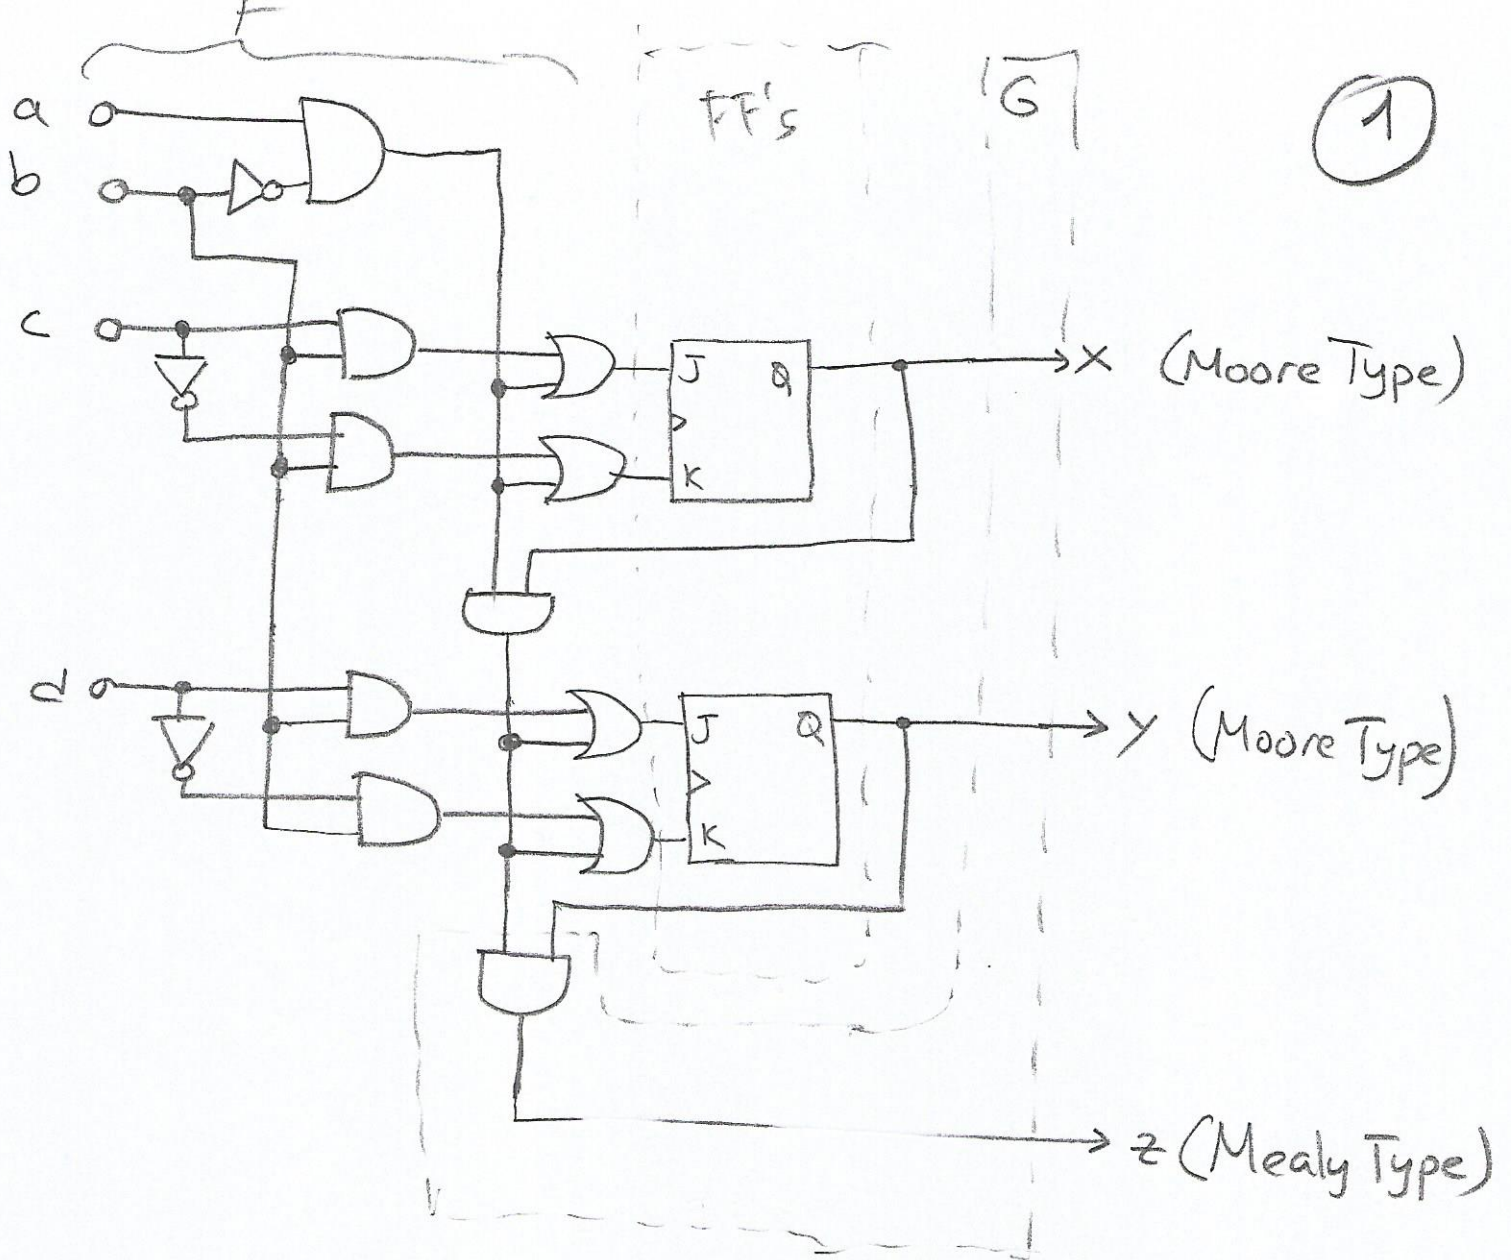 F
FF's
G
1
a
b
c
J Q
K
X (Moore Type)
d
J Q
K
Y (Moore Type)
Z (Mealy Type)